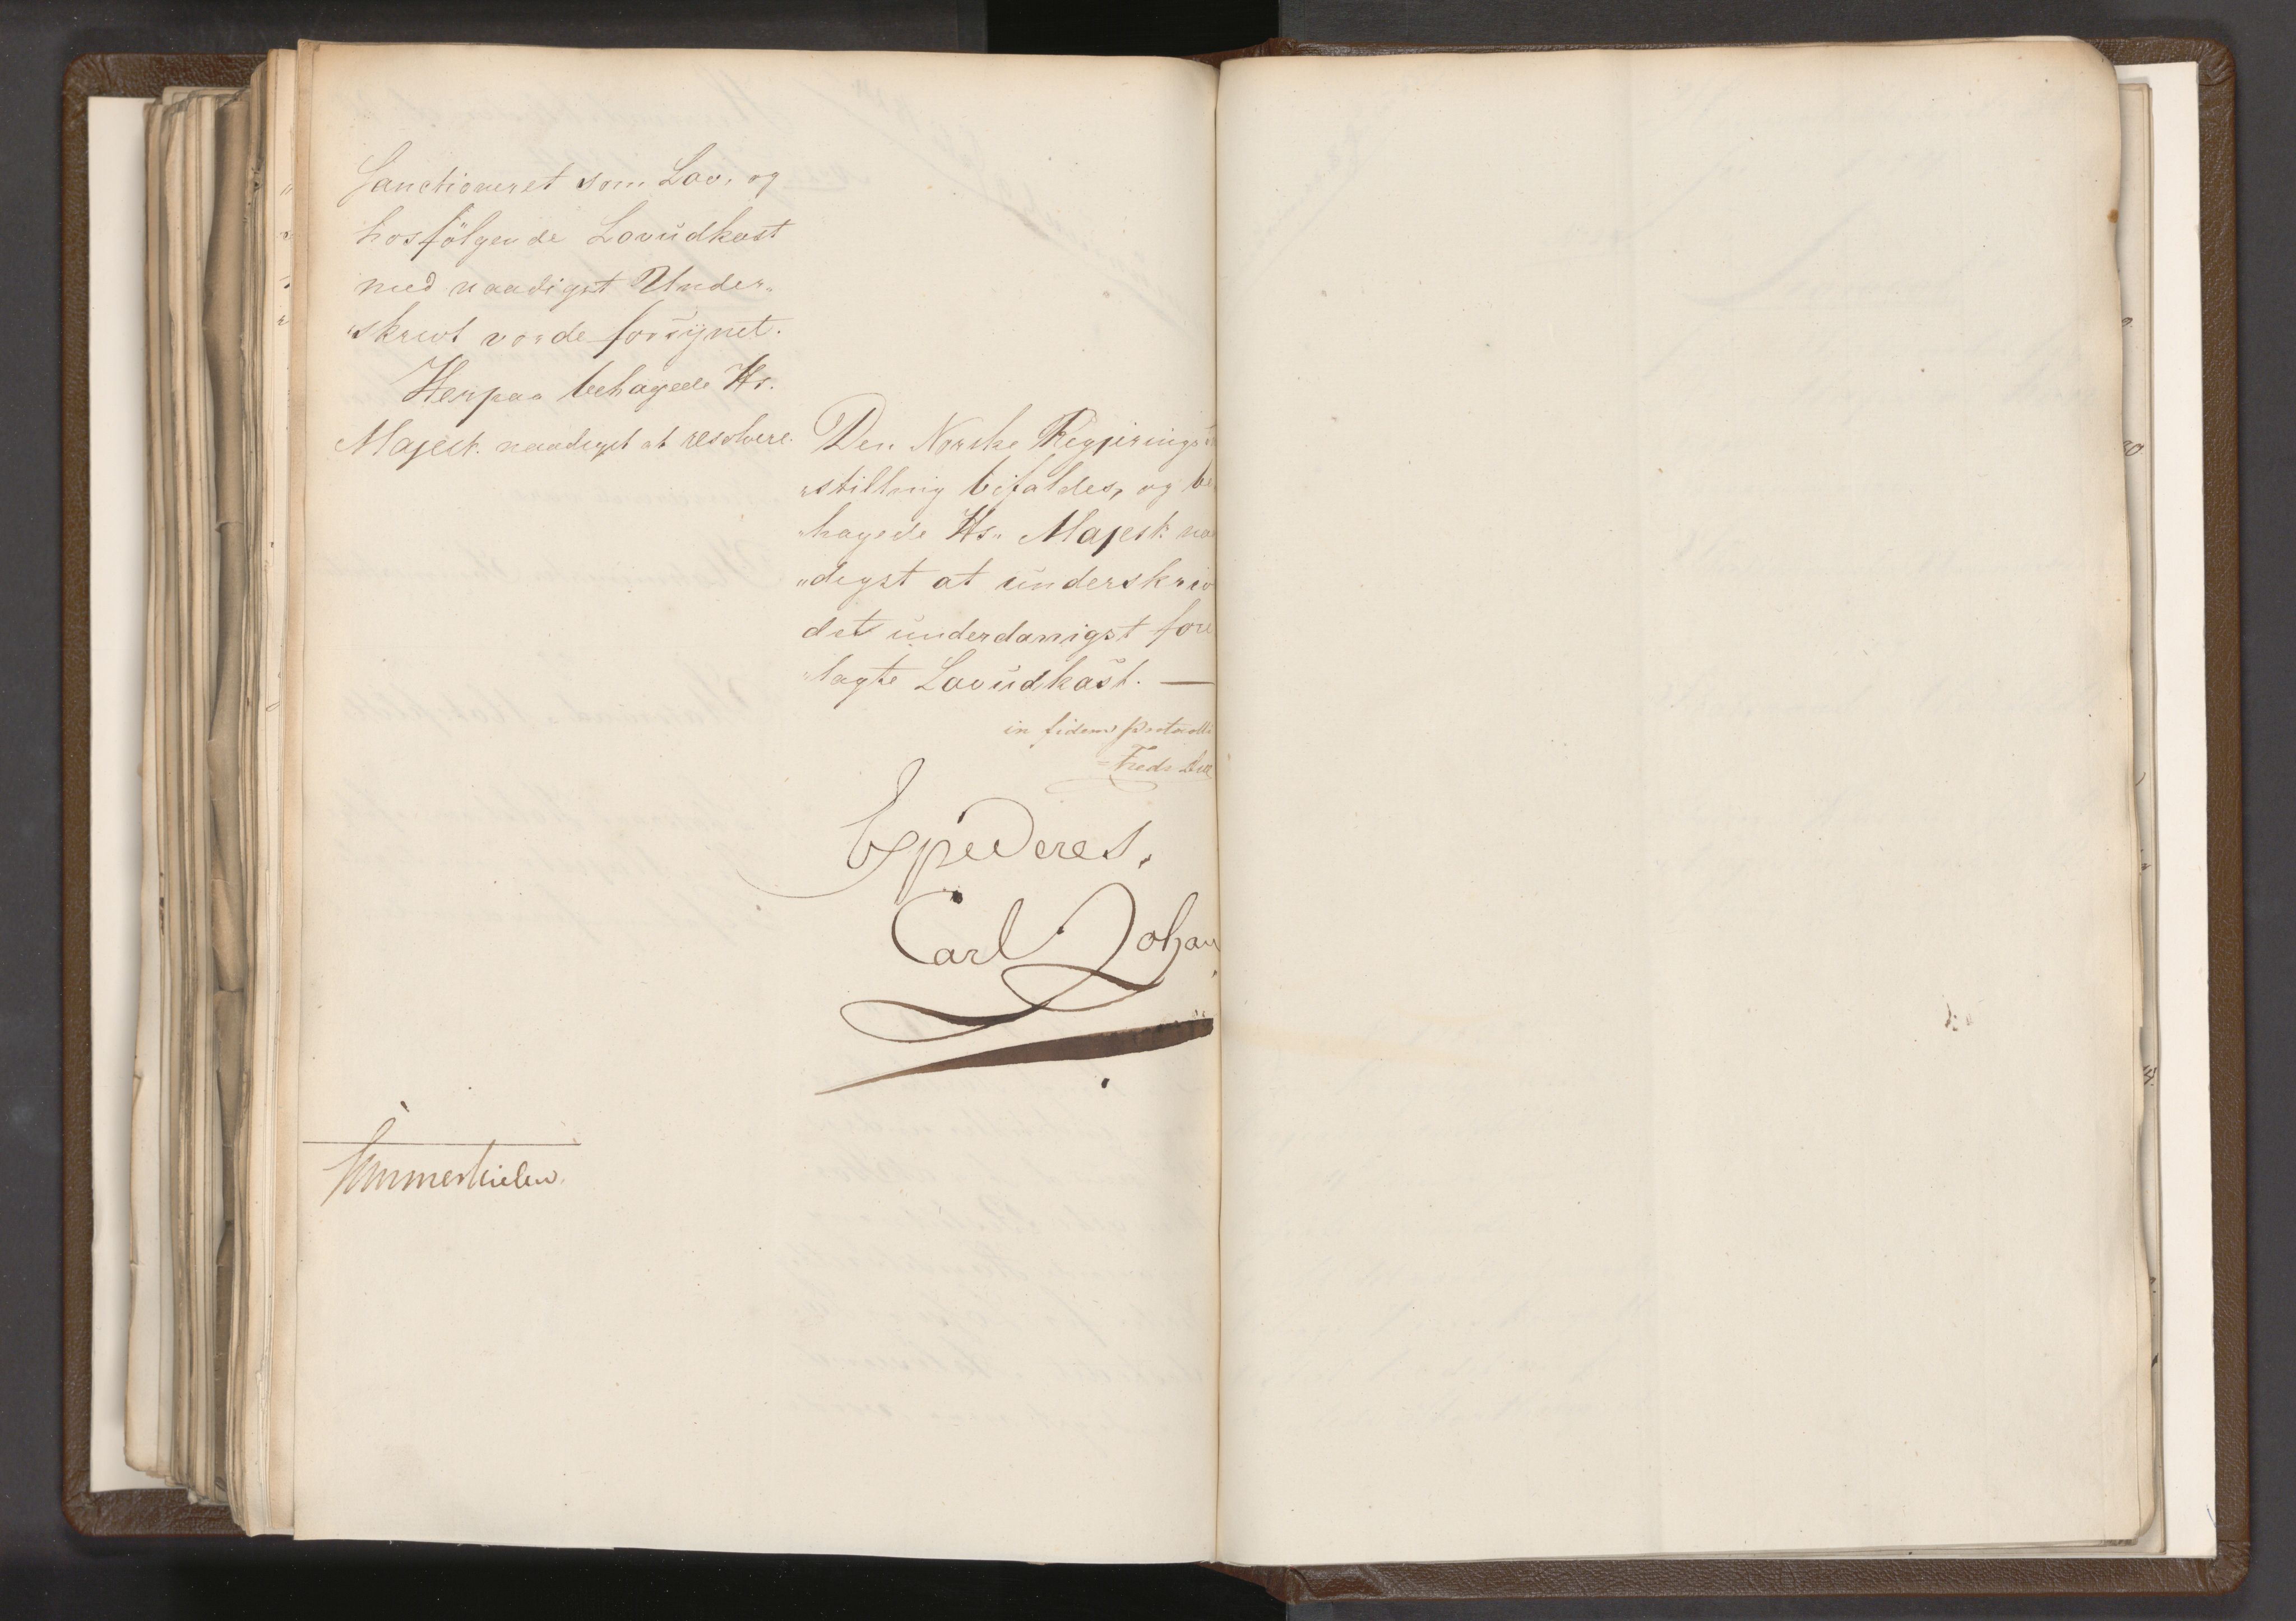 Sanctioneret som Lov, og
hosfölgende Lovudkast
med naadigst Under„
„skrivt vorde forsÿnet.
Herpaa behagede Hs.
Majest. naadigst at resolvere.
Den Norske Regjerings
„stilling bifaldes, og be
„hagede Hs. Majest: naa
„digst at underskriv
det underdanigst fore
„lagte Lovudkast. —
in fidem protocolli
Fredr Due
Expederes.
Carl Johan
Sommerhielm.